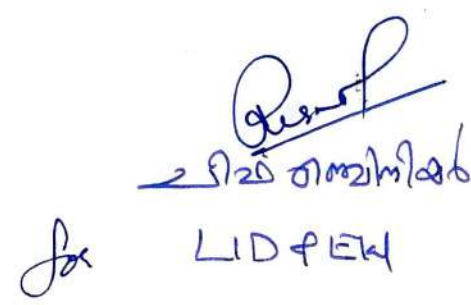 ചീഫ് എഞ്ചിനിയർ
for LID & EW